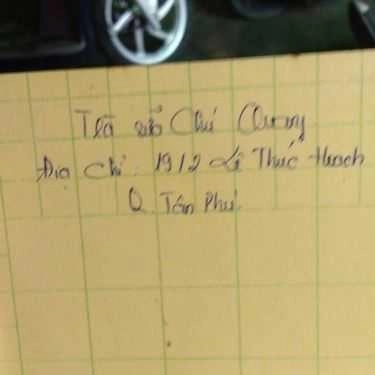 Trả sữa Chú Quang
Địa chỉ 19/2 Lê Thúc Hoạch
Q Tân Phú.